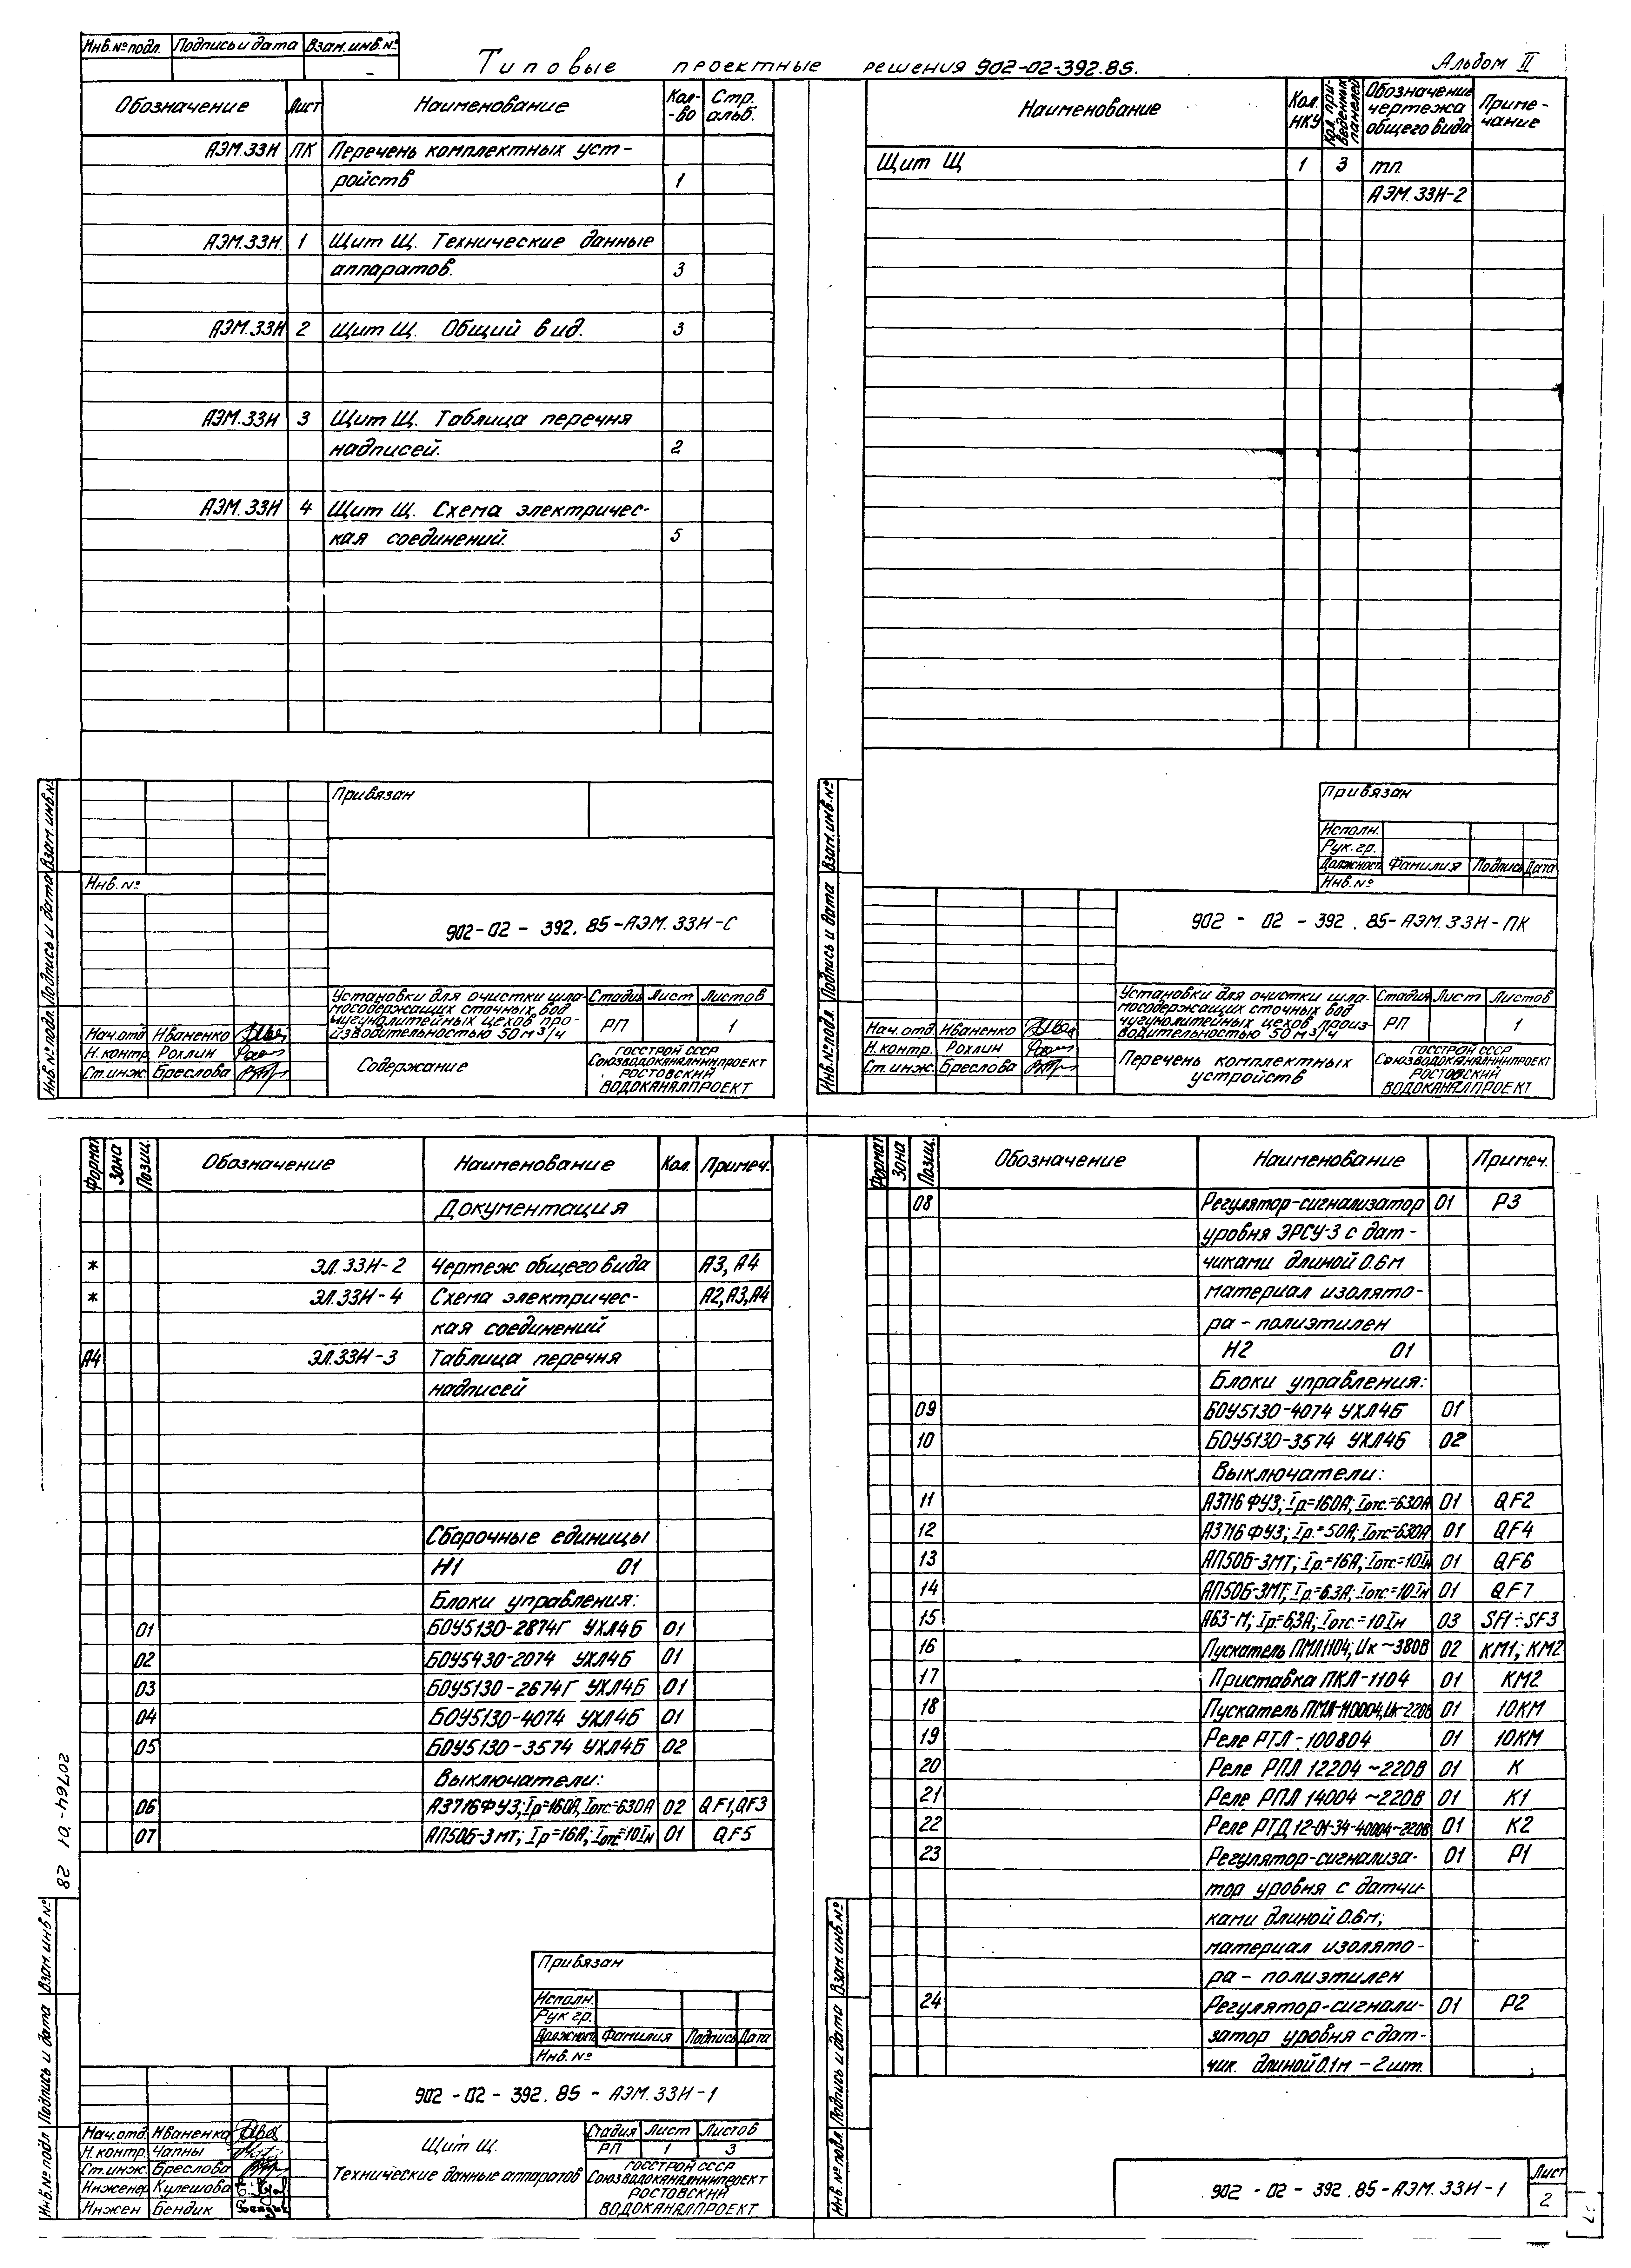 Инв.№подл. Подпись и дата Взам.инв.№
Типовые проектные решения 902-02-392.85. Альбом II
Обозначение Лист Наименование Кол-во Стр. альб.
АЭМ.ЗЗИ ПК Перечень комплектных уст-
ройств 1
АЭМ.ЗЗИ. 1 Щит Щ. Технические данные
аппаратов. 3
АЭМ.ЗЗИ 2 Щит Щ. Общий вид. 3
АЭМ.ЗЗИ 3 Щит Щ. Таблица перечня
надписей. 2
АЭМ.ЗЗИ 4 Щит Щ. Схема электричес-
кая соединений. 5
Привязан
Инв.№
902-02-392.85-АЭМ.ЗЗИ-С
Установки для очистки шла-
мосодержащих сточных вод
чугунолитейных цехов про-
изводительностью 50 м³/ч
Стадия Лист Листов
РП 1
Нач.отд. Иваненко
Н.контр. Рохлин
Ст.инж. Бреслова
Содержание
ГОССТРОЙ СССР
СОЮЗВОДОКАНАЛНИИПРОЕКТ
РОСТОВСКИЙ
ВОДОКАНАЛПРОЕКТ
Инв.№подл. Подпись и дата Взам.инв.№
Наименование Кол. НКУ Кол. при-веденных панелей Обозначение чертежа общего вида Приме-чание
Щит Щ 1 3 тп.
АЭМ.ЗЗИ-2
Привязан
Исполн.
Рук.гр.
Должность Фамилия Подпись Дата
Инв.№
902-02-392.85-АЭМ.ЗЗИ-ПК
Установки для очистки шла-
мосодержащих сточных вод
чугунолитейных цехов произ-
водительностью 50 м³/ч
Стадия Лист Листов
РП 1
Нач.отд. Иваненко
Н.контр. Рохлин
Ст.инж. Бреслова
Перечень комплектных
устройств
ГОССТРОЙ СССР
СОЮЗВОДОКАНАЛНИИПРОЕКТ
РОСТОВСКИЙ
ВОДОКАНАЛПРОЕКТ
Инв.№подл. Подпись и дата Взам.инв.№
Формат Зона Позиц. Обозначение Наименование Кол. Примеч.
Документация
* ЭЛ.ЗЗИ-2 Чертеж общего вида А3, А4
* ЭЛ.ЗЗИ-4 Схема электричес- А2,А3,А4
кая соединений
А4 ЭЛ.ЗЗИ-3 Таблица перечня
надписей
Сборочные единицы
И1 01
Блоки управления:
01 БОУ5130-2874Г УХЛ4Б 01
02 БОУ5430-2074 УХЛ4Б 01
03 БОУ5130-2674Г УХЛ4Б 01
04 БОУ5130-4074 УХЛ4Б 01
05 БОУ5130-3574 УХЛ4Б 02
Выключатели:
06 А3716ФУ3; Iр=160А, Iотс=630А 02 QF1,QF3
07 АП50Б-3МТ; Iр=16А; Iотс=10Iн 01 QF5
20764-01 28
Привязан
Исполн.
Рук гр.
Должность Фамилия Подпись Дата
Инв.№
902-02-392.85-АЭМ.ЗЗИ-1
Нач.отд. Иваненко
Н.контр. Чапны
Ст.инж. Бреслова
Инженер Кулешова
Инжен Бендик
Щит Щ.
Технические данные аппаратов
Стадия Лист Листов
РП 1 3
ГОССТРОЙ СССР
СОЮЗВОДОКАНАЛНИИПРОЕКТ
РОСТОВСКИЙ
ВОДОКАНАЛПРОЕКТ
Инв.№подл Подпись и дата Взам.инв №
Формат Зона Позиц. Обозначение Наименование Примеч.
08 Регулятор-сигнализатор 01 Р3
уровня ЭРСУ-3 с дат-
чиками длиной 0.6м
материал изолято-
ра - полиэтилен
И2 01
Блоки управления:
09 БОУ5130-4074 УХЛ4Б 01
10 БОУ5130-3574 УХЛ4Б 02
Выключатели:
11 А3716ФУ3; Iр=160А; Iотс.=630А 01 QF2
12 А3716ФУ3; Iр.=50А; Iотс=630А 01 QF4
13 АП50Б-3МТ; Iр.=16А; Iотс.=10Iн 01 QF6
14 АП50Б-3МТ, Iр=6.3А; Iотс=10Iн 01 QF7
15 А63-М; Iр=6,3А; Iотс.=10Iн 03 SF1÷SF3
16 Пускатель ПМЛ1104; Uк ~380В 02 КМ1; КМ2
17 Приставка ПКЛ-1104 01 КМ2
18 Пускатель ПМЛ-110004, Uк~220В 01 10КМ
19 Реле РТЛ-100804 01 10КМ
20 Реле РПЛ 12204 ~220В 01 К
21 Реле РПЛ 14004 ~220В 01 К1
22 Реле РТД 12-01-34-40004~220В 01 К2
23 Регулятор-сигнализа- 01 Р1
тор уровня с датчи-
ками длиной 0.6м;
материал изолято-
ра - полиэтилен
24 Регулятор-сигнали- 01 Р2
затор уровня с дат-
чик. длиной 0.1м - 2шт.
902-02-392.85-АЭМ.ЗЗИ-1
Лист
2
Инв.№подл. Подпись и дата Взам.инв.№